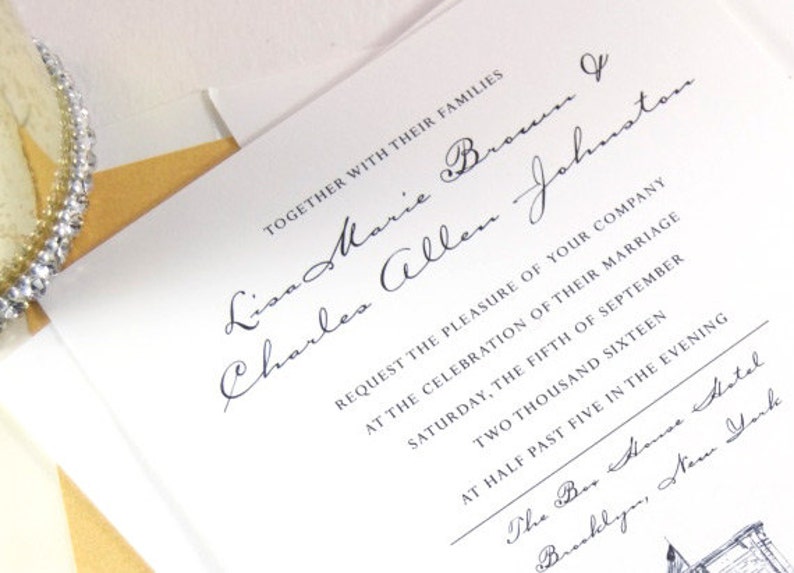 TOGETHER WITH THEIR FAMILIES
Lisa Marie Brown &
Charles Allen Johnston
REQUEST THE PLEASURE OF YOUR COMPANY
AT THE CELEBRATION OF THEIR MARRIAGE
SATURDAY, THE FIFTH OF SEPTEMBER
TWO THOUSAND SIXTEEN
AT HALF PAST FIVE IN THE EVENING
The Box House Hotel
Brooklyn, New York